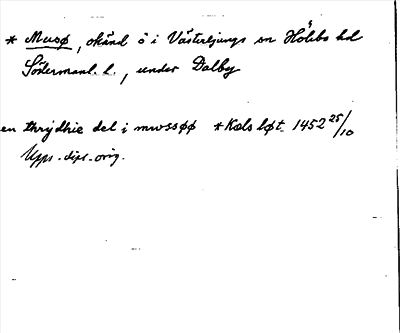 * Musø, okänd ö i Västerljungs sn Hölbo hd
Södermanl. l., under Dalby
en thrydhie del i mwssøø *Kals løt 1452 25/10
Upps. dipl. orig.